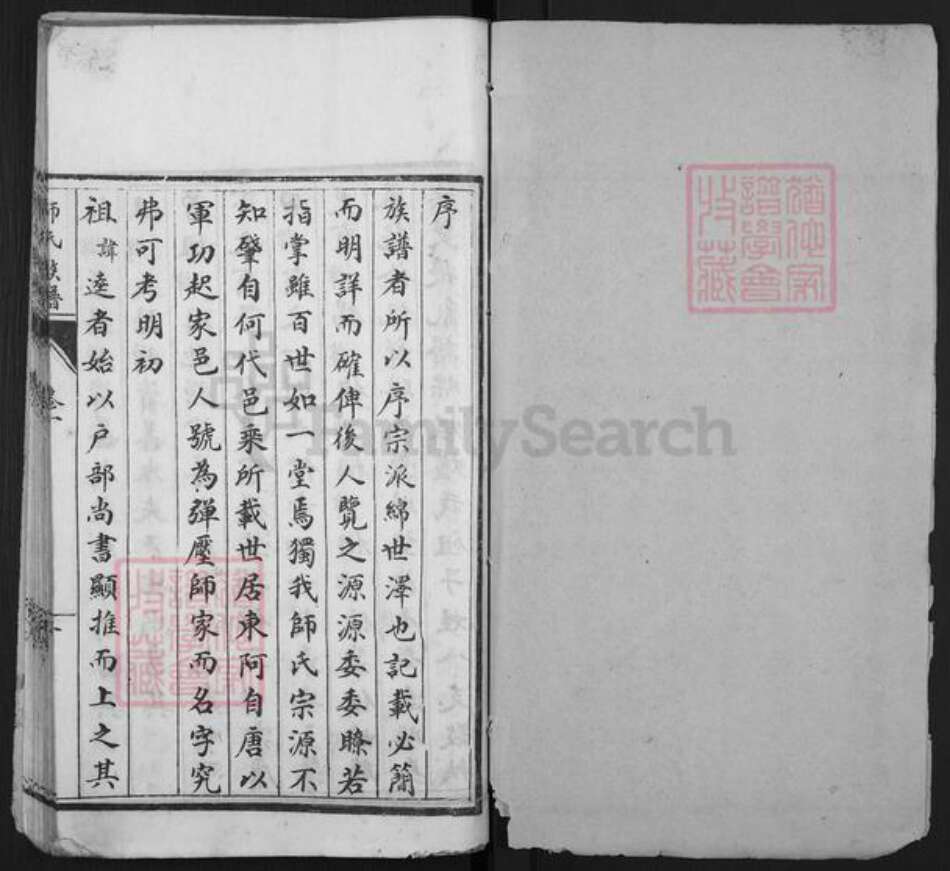 序
族譜者所以序宗派綿世澤也記載必簡
而明詳而確俾後人覽之源源委委瞭若
指掌雖百世如一堂焉獨我師氏宗源不
知肇自何代邑乘所載世居東阿自唐以
軍功起家邑人號為彈壓師家而名字究
弗可考明初
祖諱逵者始以户部尚書顯推而上之其
師氏族譜
卷一
FamilySearch